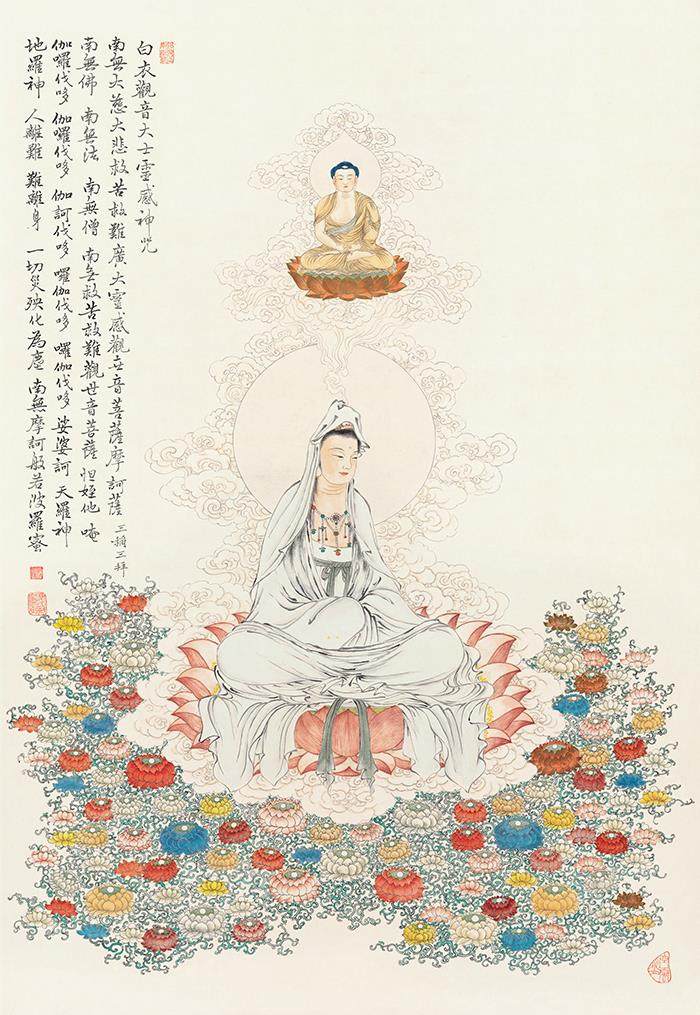 白衣觀音大士靈感神咒
南無大慈大悲救苦救難廣大靈感觀世音菩薩摩訶薩 三稱三拜
南無佛 南無法 南無僧 南無救苦救難觀世音菩薩 怛姪他 唵
伽囉伐哆 伽囉伐哆 伽訶伐哆 囉伽伐哆 囉伽伐哆 娑婆訶 天羅神
地羅神 人離難 難離身 一切災殃化為塵 南無摩訶般若波羅蜜